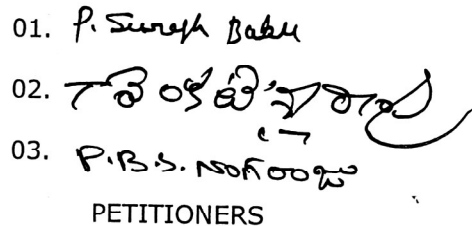 01. P. Suresh Babu
02.
03. P.B.S. నాగరాజు
PETITIONERS